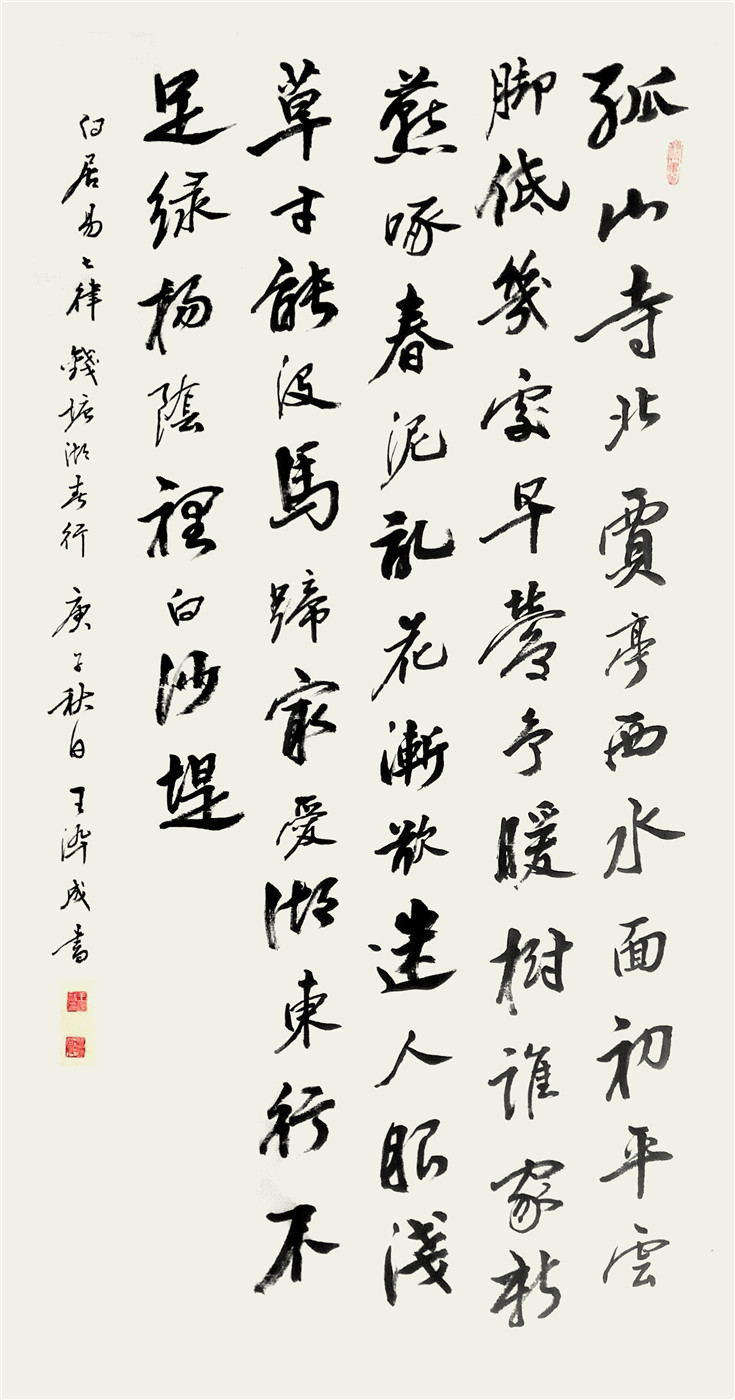 孤山寺北賈亭西水面初平雲
脚低幾處早鶯争暖樹誰家新
燕啄春泥乱花漸欲迷人眼淺
草才能没馬蹄最愛湖東行不
足绿楊陰裡白沙堤
白居易七律錢塘湖春行庚子秋日王成書